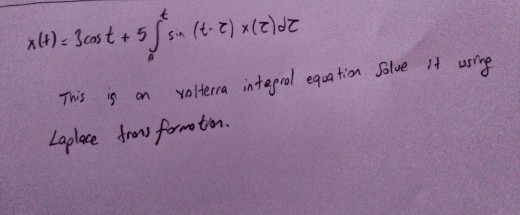 x(t) = 3cos t + 5 ∫₀ᵗ sin (t-τ) x(τ)dτ
This is an volterra integral equation. Solve it using
Laplace transformation.